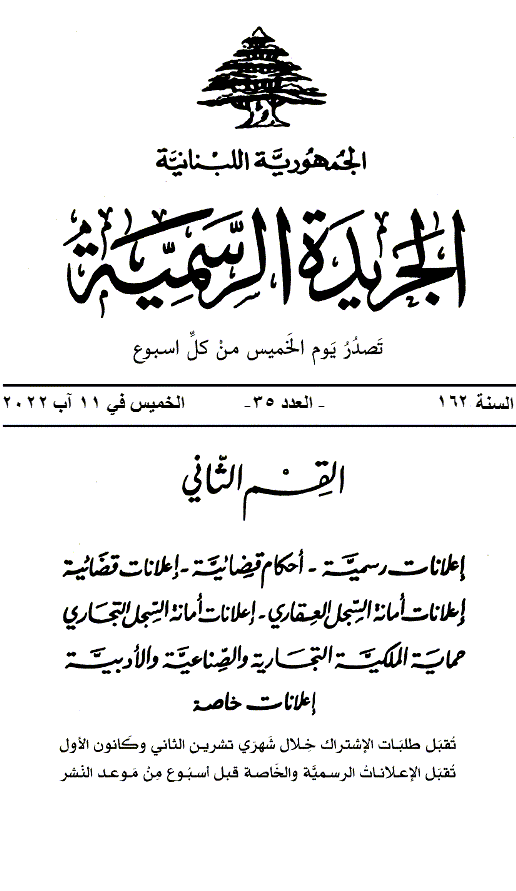 الجُمهُوريَّة اللبْنانيَّة
الجَريدَة الرسَّمِيَّة
تَصدُرُ يَوم الخَميس منْ كلِّ اسبوع
السنة ١٦٢ - العدد ٣٥- الخميس في ١١ آب ٢٠٢٢
القِسْم الثَّاني
إعلانات رسميَّة - أحكام قضَائيَّة - إعلانات قضَائية
إعلانات أمانة السِّجل العِقاري - إعلانات أمانة السِّجل التجاري
حماية الملكيَّة التجارية والصِّناعيَّة والأدبيَّة
إعلانات خاصة
تُقبَل طلبَات الإشتراك خِلال شَهرَي تشرين الثاني وكَانون الأول
تُقبَل الإعلاناتُ الرسميَّة والخَاصة قبل أسبُوع مِنْ مَوعد النشر